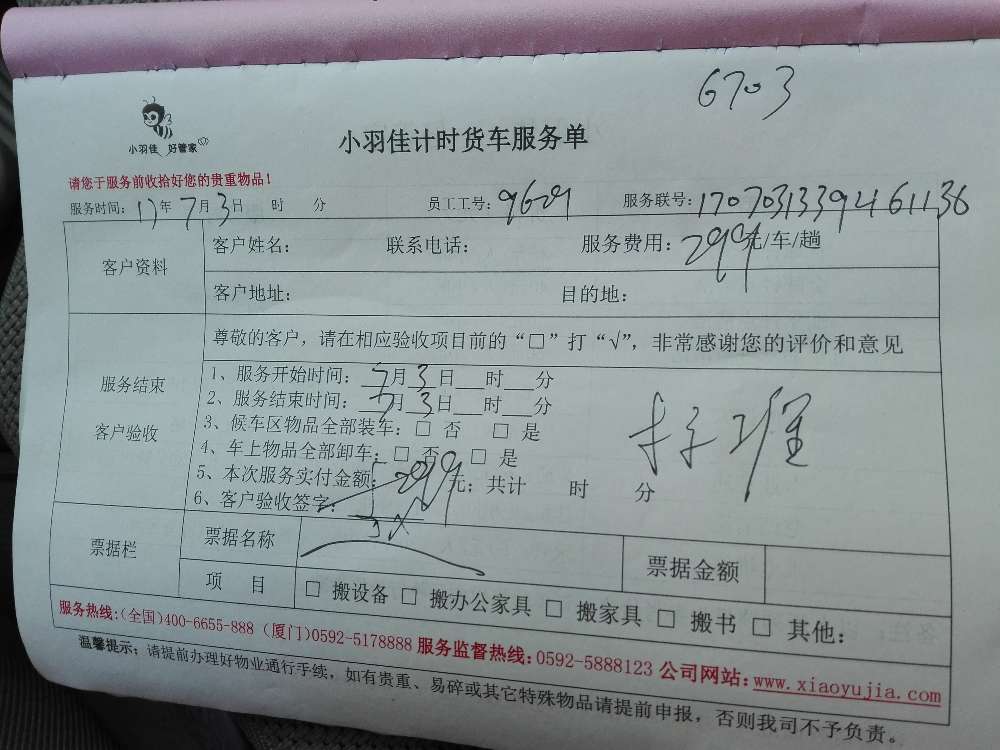 6703
小羽佳 好管家
小羽佳计时货车服务单
请您于服务前收拾好您的贵重物品！
服务时间：17年7月3日 时 分 员工工号：9629 服务联号：1707031339461136
客户资料 客户姓名： 联系电话： 服务费用：299元/车/趟
客户地址： 目的地：
尊敬的客户，请在相应验收项目前的“□”打“√”，非常感谢您的评价和意见
服务结束
客户验收
1、服务开始时间：7月3日 时 分
2、服务结束时间：7月3日 时 分
3、候车区物品全部装车：□ 否 □ 是
4、车上物品全部卸车：□ 否 □ 是
5、本次服务实付金额：299元；共计 时 分
6、客户验收签字：
票据栏 票据名称 票据金额
项 目 □ 搬设备 □ 搬办公家具 □ 搬家具 □ 搬书 □ 其他：
服务热线：(全国)400-6655-888 (厦门)0592-5178888 服务监督热线：0592-5888123 公司网站：www.xiaoyujia.com
温馨提示：请提前办理好物业通行手续，如有贵重、易碎或其它特殊物品请提前申报，否则我司不予负责。